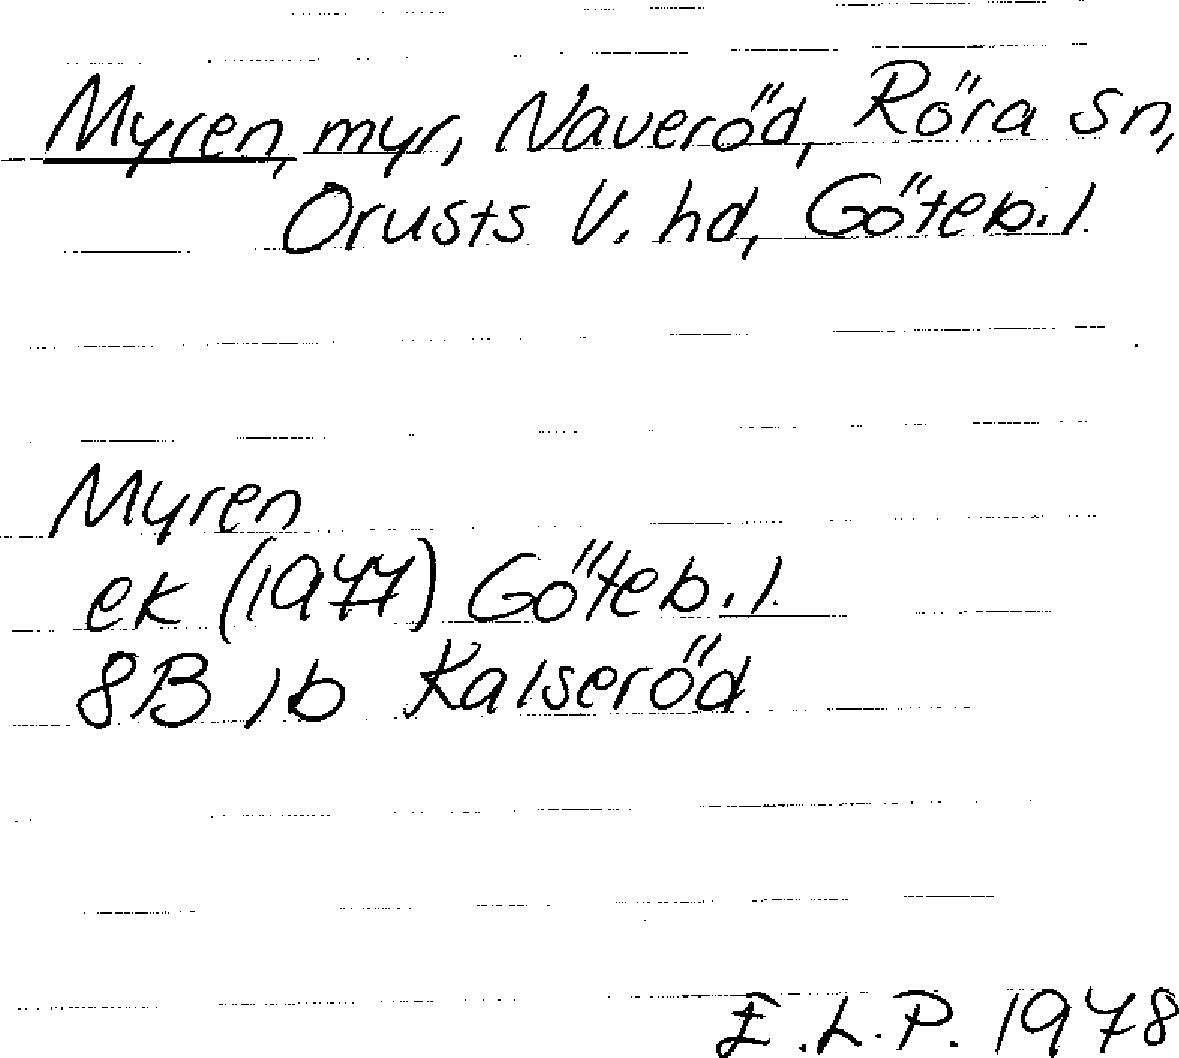 Myren, myr, Naveröd, Röra sn,
Orusts V. hd, Göteb. l.
Myren
ek (1977) Göteb. l.
8B 1b Kalseröd
E.L.P. 1978